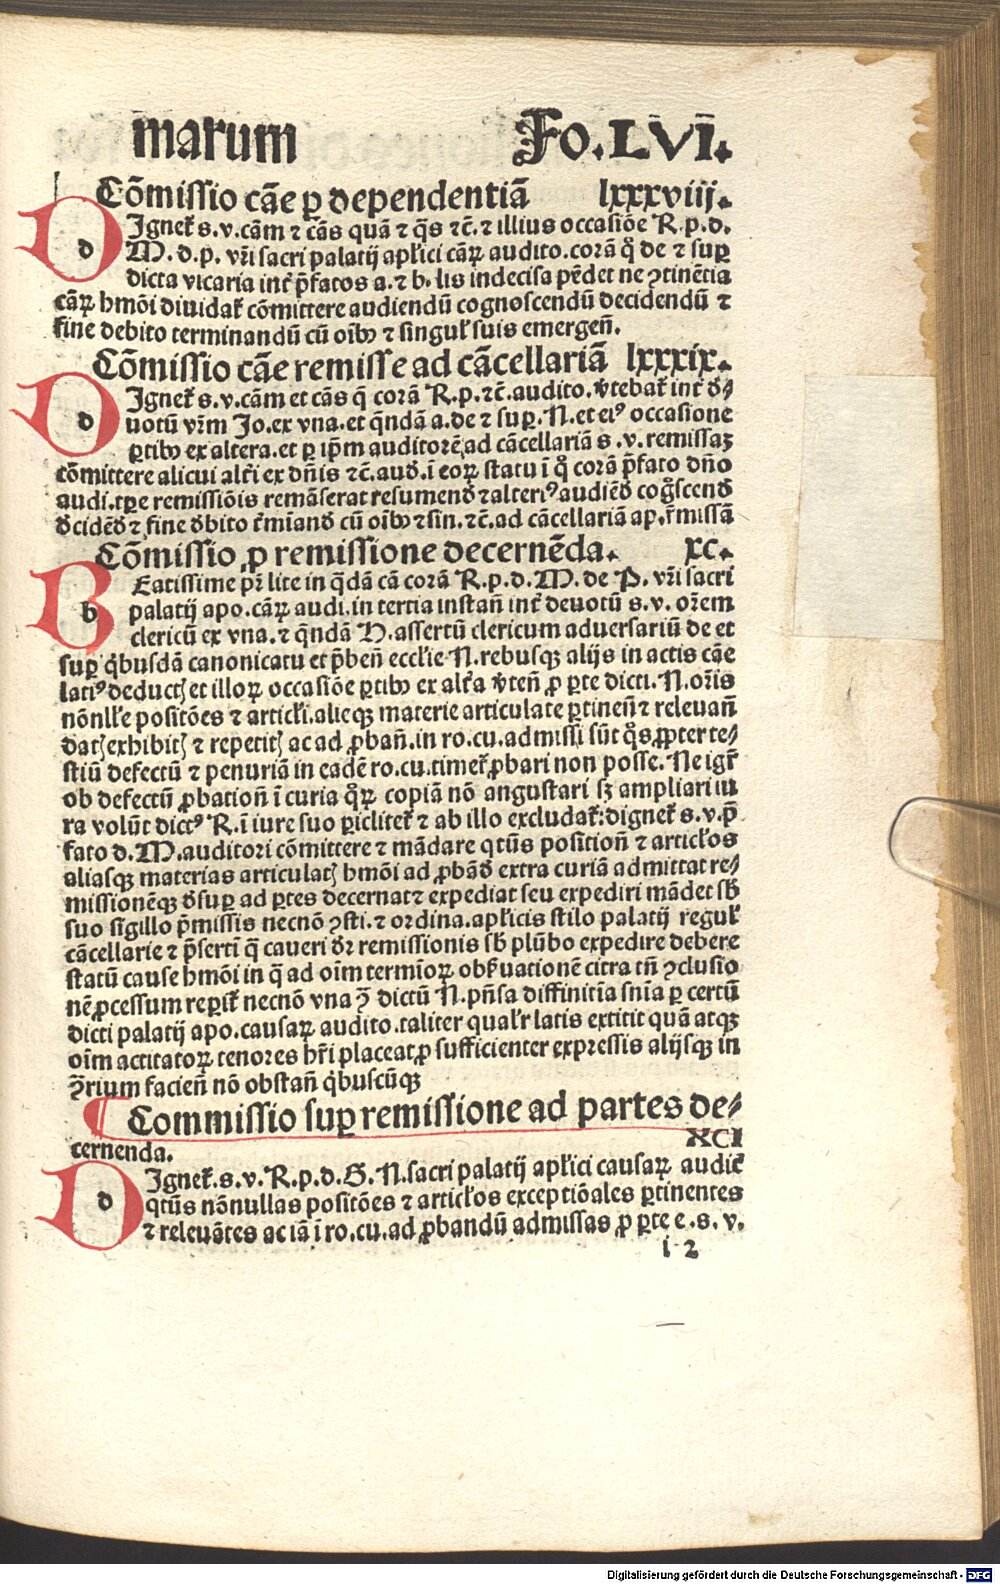 marum Fo. LVI.
Cōmissio cāe ꝑ dependentiā lxxxviij.
DIgnet̄ s. v. cām ⁊ cās quā ⁊ q̄s ⁊c̄. ⁊ illius occasiōe R. p. d.
M. d. p. vr̄i sacri palatij apl̄ici cāꝝ audito. corā q̄ de ⁊ suꝑ
dicta vicaria int̄ p̄fatos a. ⁊ b. lis indecisa pēdet ne ꝯtinētia
cāꝝ hmōi diuidat̄ cōmittere audiendū cognoscendū decidendū ⁊
fine debito terminandū cū oīb⁹ ⁊ singul̄ suis emergen̄.
Cōmissio cāe remisse ad cācellariā lxxxix.
DIgnet̄ s. v. cām et cās q̄ corā R. p. ⁊c̄. audito. v̄tebat̄ int̄ d̄-
uotū vr̄m Jo. ex vna. et q̄ndā a. de ⁊ suꝑ. N. et ei⁹ occasione
ꝑtib⁹ ex altera. et ꝑ ip̄m auditorē ad cācellariā s. v. remissaz
cōmittere alicui alt̄i ex dn̄is ⁊c̄. aud̄. ī eoꝝ statu ī q̄ corā p̄fato dn̄o
audi. tꝑe remissiōis remāserat resumend̄ ⁊ alteri⁹ audiēd̄ coḡscend̄
d̄cidēd̄ ⁊ fine d̄bito t̄miand̄ cū oīb⁹ ⁊ sin. ⁊c̄. ad cācellariā ap. r̄missā
Cōmissio ꝓ remissione decernēda. xc.
BEatissime pr̄ lite in q̄dā cā corā R. p. d. M. de P. vr̄i sacri
palatij apo. cāꝝ audi. in tertia instan̄ int̄ deuotū s. v. or̄em
clericū ex vna. ⁊ q̄ndā H. assertū clericum aduersariū de et
suꝑ q̄busdā canonicatu et p̄ben̄ eccl̄ie N. rebusqꝫ alijs in actis cāe
lati⁹ deductꝭ et illoꝝ occasiōe ꝑtib⁹ ex alt̄a v̄ten̄ ꝓ ꝑte dicti. N. or̄is
nōnll̄e positōes ⁊ articl̄i. alieqꝫ materie articulate ꝑtinen̄ ⁊ releuan̄
datꝭ exhibitꝭ ⁊ repetitꝭ ac ad ꝓban̄. in ro. cu. admissi sūt q̄s ꝓpter te-
stiū defectū ⁊ penuriā in eadē ro. cu. timet̄ ꝓbari non posse. Ne igr̄
ob defectū ꝓbation̄ ī curia q̄ꝝ copiā nō angustari sꝫ ampliari iu
ra volūt dict⁹ R. ī iure suo ꝑiclitet̄ ⁊ ab illo excludat̄: dignet̄ s. v. p̄
fato d. M. auditori cōmittere ⁊ mādare qtūs position̄ ⁊ articl̄os
aliasqꝫ materias articulatꝭ hmōi ad ꝓbād̄ extra curiā admittat re-
missionēqꝫ d̄suꝑ ad ꝑtes decernat ⁊ expediat seu expediri mādet sb̄
suo sigillo p̄missis necnō ꝯsti. ⁊ ordina. apl̄icis stilo palatij regul̄
cācellarie ⁊ p̄serti q̄ caueri d̄r remissionis sb̄ plūbo expedire debere
statū cause hmōi in q̄ ad oīm termīoꝝ obs̄uationē citra tn̄ ꝯclusio
nē ꝓcessum reꝑit̄ necnō vna ꝯ̄ dictū N. pn̄sa diffinitīa sn̄ia ꝑ certū
dicti palatij apo. causaꝝ audito. taliter qual̄r latis extitit quā atqꝫ
oīm actitatoꝝ tenores hr̄i placeat ꝓ sufficienter expressis alijsqꝫ in
ꝯ̄rium facien̄ nō obstan̄ q̄buscūqꝫ
¶ Commissio suꝑ remissione ad partes de-
cernenda. XCI
DIgnet̄. s. v. R. p. d. G. N. sacri palatij apl̄ici causaꝝ audit̄
qtūs nōnullas positōes ⁊ articl̄os exceptiōales ꝑtinentes
⁊ releuātes ac iā ī ro. cu. ad ꝓbandū admissas ꝓ ꝑte e. s. v.
i 2
Digitalisierung gefördert durch die Deutsche Forschungsgemeinschaft - DFG